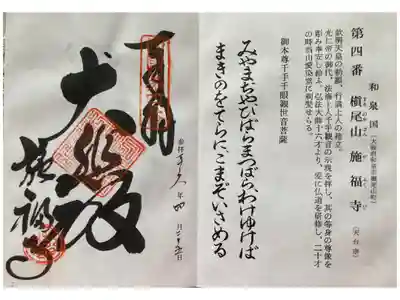 和泉国(大阪府和泉市槇尾山町)
第四番 槇尾山 施福寺(天台宗)
まきのおさん せふくじ
欽明天皇の勅願、行満上人の建立。
光仁帝の御代、法海上人千手観音の示現を拝し、其の等身の尊像を
彫み奉安し給ふ。弘法大師十六才より、爰に仏道を研修し、二十才
の時当山愛染堂に剃髪せらる。
御本尊千手千眼観世音菩薩
みやまぢやひばらまつばらわけゆけば
まきのをてらにこまぞいさめる
奉拝
大悲殿
施福寺
年 四月二十五日